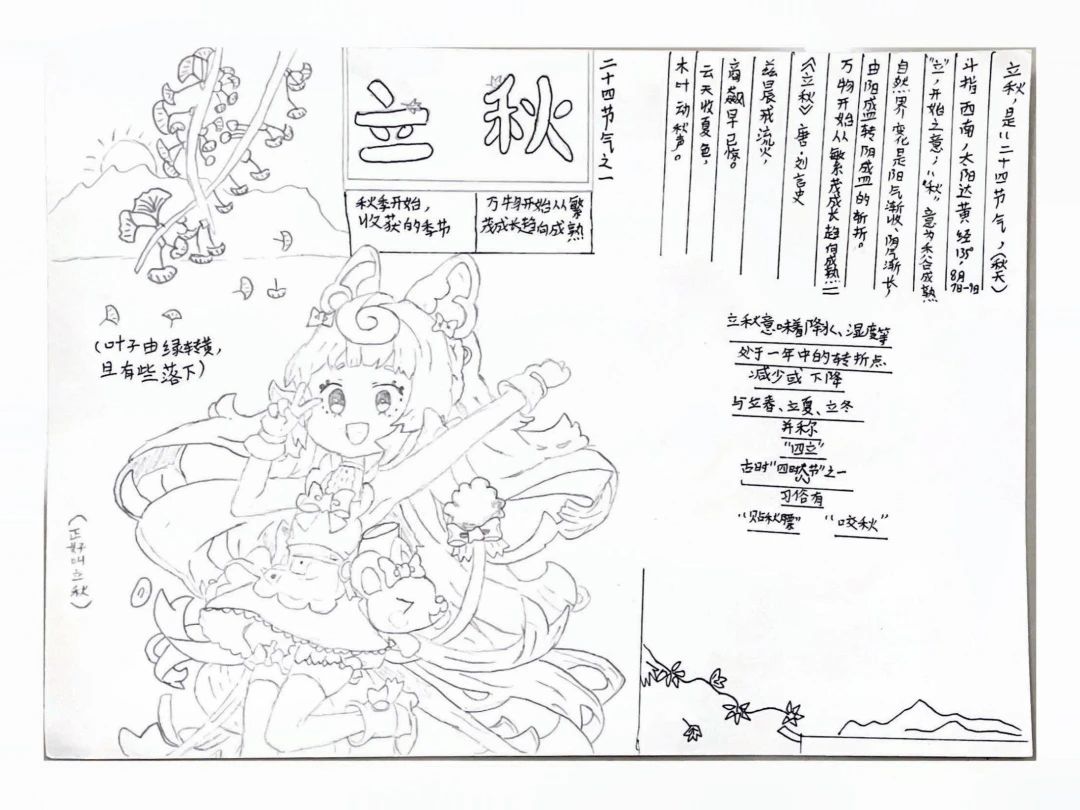 立秋
二十四节气之一
秋季开始，
收获的季节
万物开始从繁
茂成长趋向成熟
立秋，是"二十四节气，(秋天)
斗指西南，太阳达黄经135°，8月7日-9日
"立"，开始之意；"秋"意为禾谷成熟
自然界变化是阳气渐收、阴气渐长，
由阳盛转阴盛的折折。
万物开始从繁茂成长趋向成熟
《立秋》唐·刘言史
兹晨戒流火，
商飙早已惊。
云天收夏色，
木叶动秋声。
(叶子由绿转黄，
且有些落下)
(正好叫立秋)
立秋意味着降水、湿度等
处于一年中的转折点
减少或下降
与立春、立夏、立冬
并称
"四立"
古时"四时八节"之一
习俗有
"贴秋膘" "咬秋"